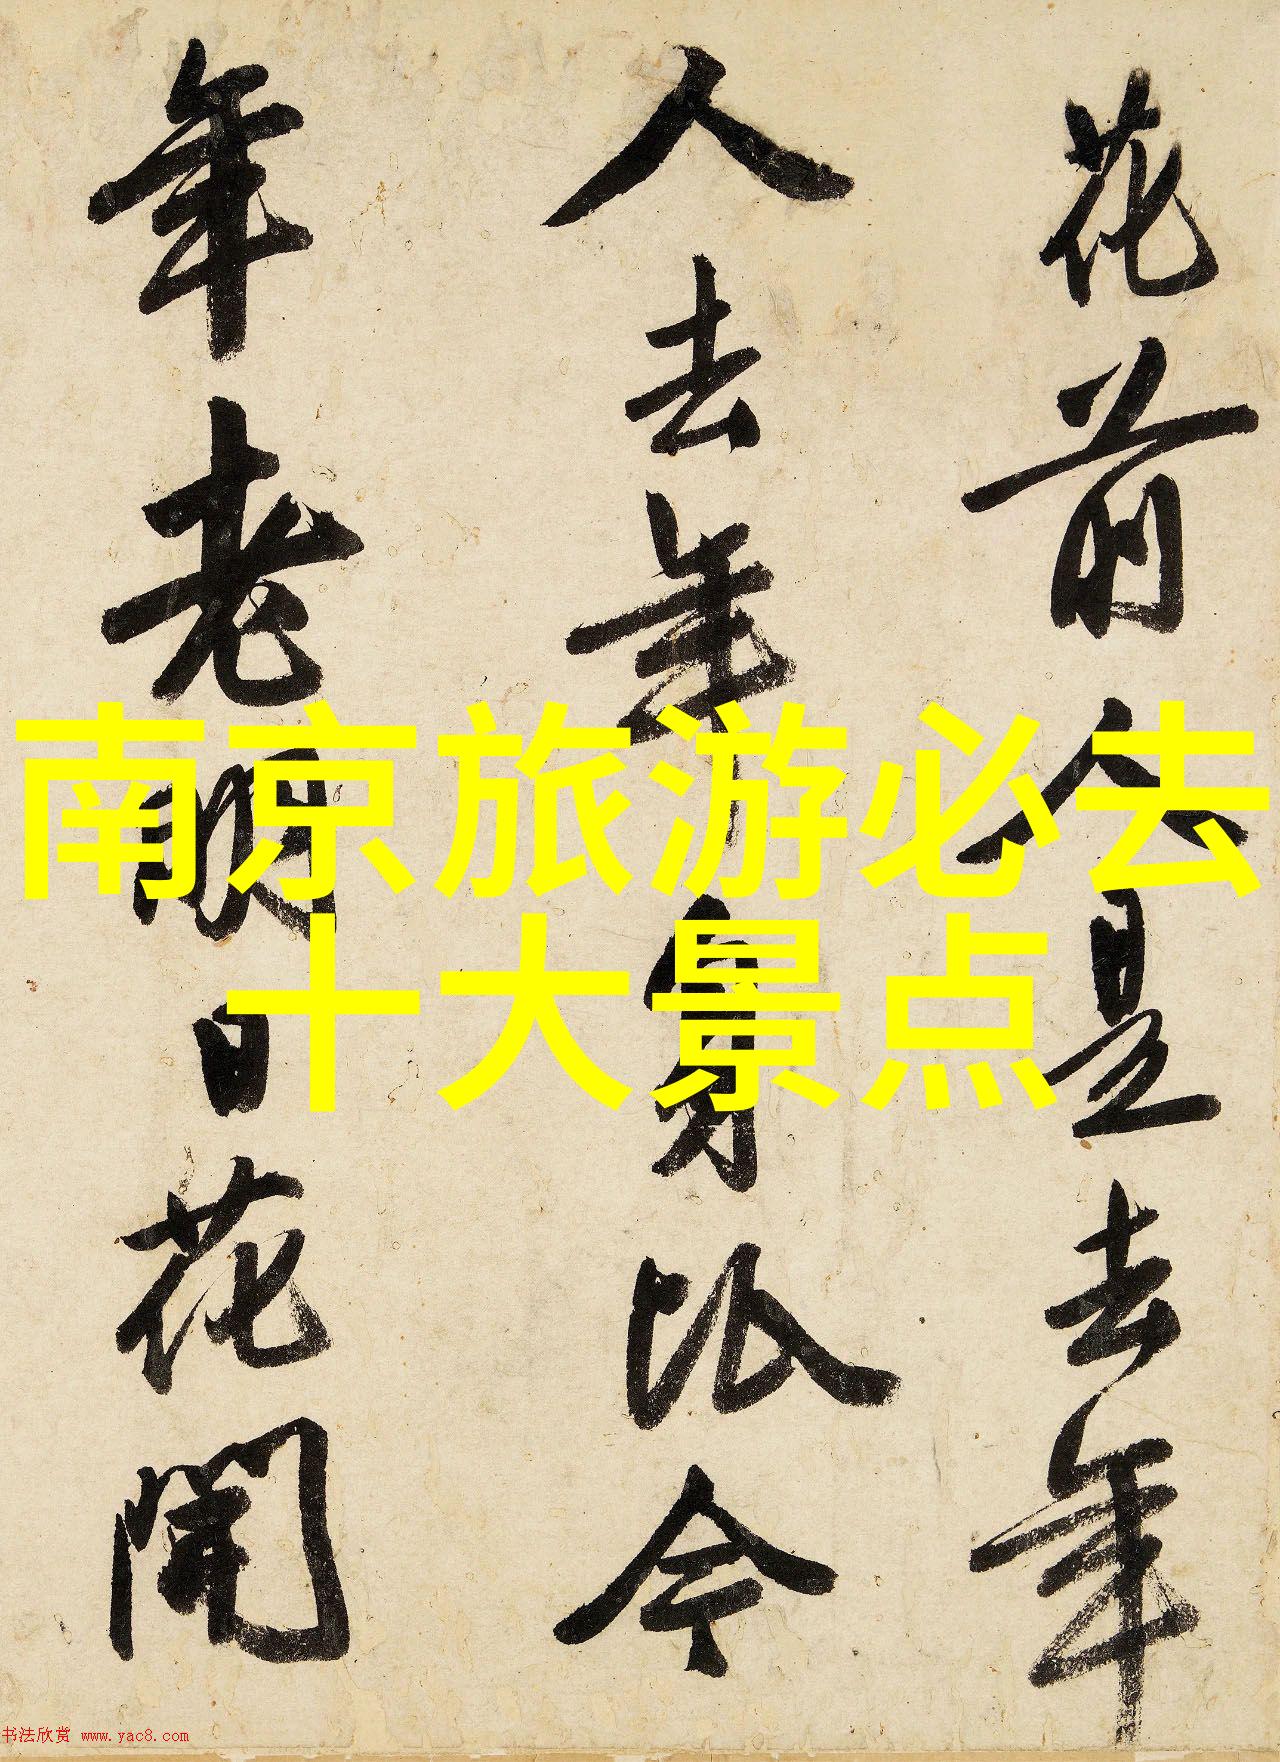 花前人是去年
人去年身比今
年老明日花開
南京旅游必去
十大景点
书法欣赏 www.yac8.com